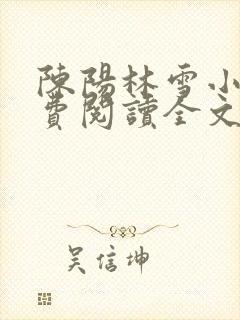 陳陽林雪小
費閱讀全文
吴信坤